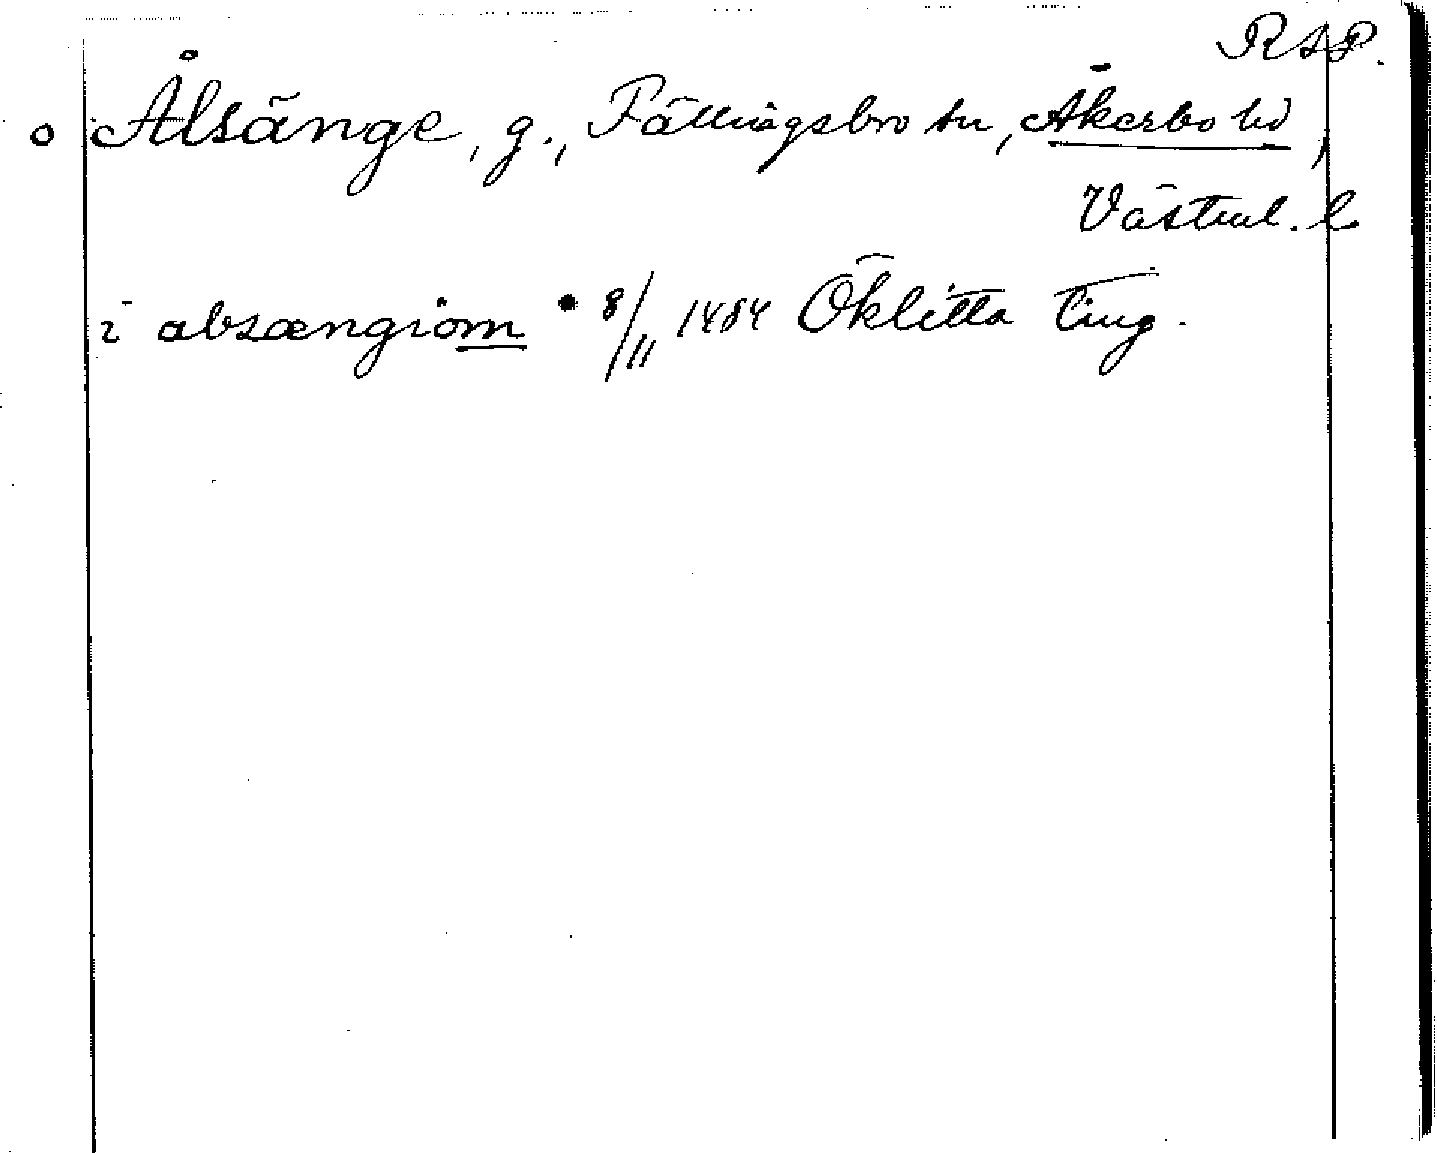 RAP.
o Ålsänge, g., Fällingsbro sn, Åkerbo hd,
Västml. l
i absængiom • 8/11 1484 Öklitta ting.